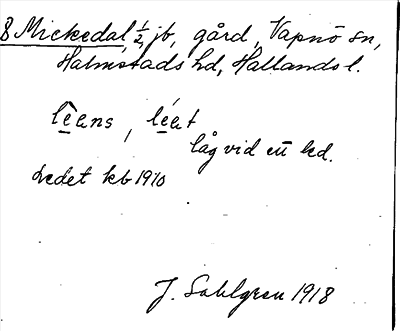 8 Mickedal, 1/2 jb, gård, Vapnö sn,
Halmstads hd, Hallands l.
lèens, léet
låg vid ett led.
Ledet kb 1910
J. Sahlgren 1918